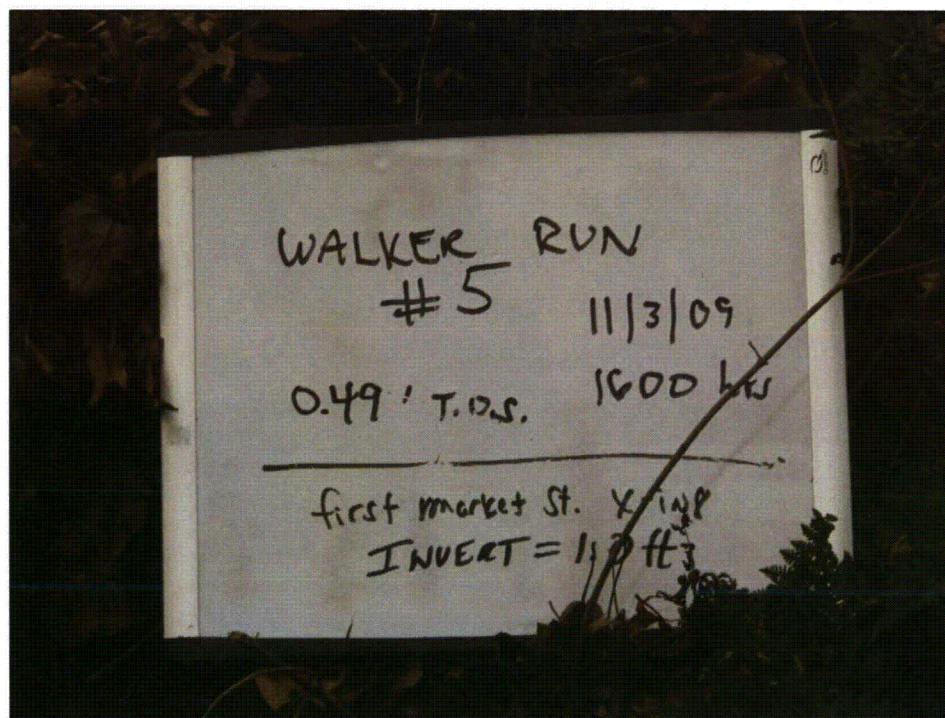 WALKER RUN
#5
11/3/09
0.49' T.O.S.
1600 hrs
first market St. X-ing
INVERT =